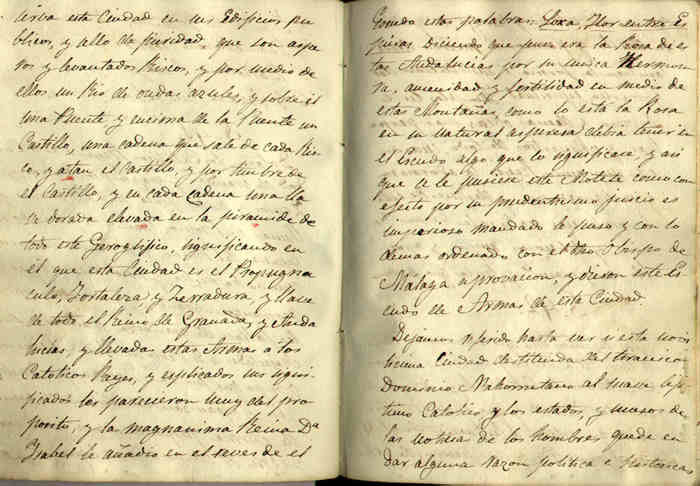 usa esta Ciudad en sus Edificios pu
blicos, y sello de puridad, que son aspe
ros y levantados Riscos, y por medio de
ellos un Rio de ondas azules, y sobre el
una Puente y encima de la Puente un
Castillo, una cadena que sale de cada Ris
co, y atan el Castillo, y por timbre de
el Castillo, y en cada cadena una lla
ve dorada elevada en la piramide de
todo este Geroglifico, significando en
el que esta Ciudad es el Propugna
culo, Fortaleza y Zerradura, y llave
de todo el Reino de Granada, y Anda
lucias, y llevada estas Armas a los
Catolicos Reyes, y esplicados sus signi-
ficados les parecieron muy del pro
posito, y la magnanima Reina Dª
Isabel le añadio en el reves de el
Escudo estas palabras: Loxa, Flor entre Es
pinas. Diciendo que pues era la Rosa de es
tas Andalucias por su unica Hermosu
ra, amenidad y fertilidad en medio de
estas Montañas, como lo está la Rosa
en su natural aspereza debia tener en
el Escudo algo que lo significase y asi
que se le pusiese este Motete como con
efecto por su prudentisimo juicio es
imperioso mandado se puso y con lo
demas ordenado con el Obispo de
Málaga aprovacion, y dieron este Es
cudo de Armas de esta Ciudad.
Dejamos referido hasta ver a esta nobi
lisima Ciudad destituida del tiranico
Dominio Mahometano al suave
Catolico y los estados, y
las noticia de los hombres quede en
dar alguna razon politica e historica